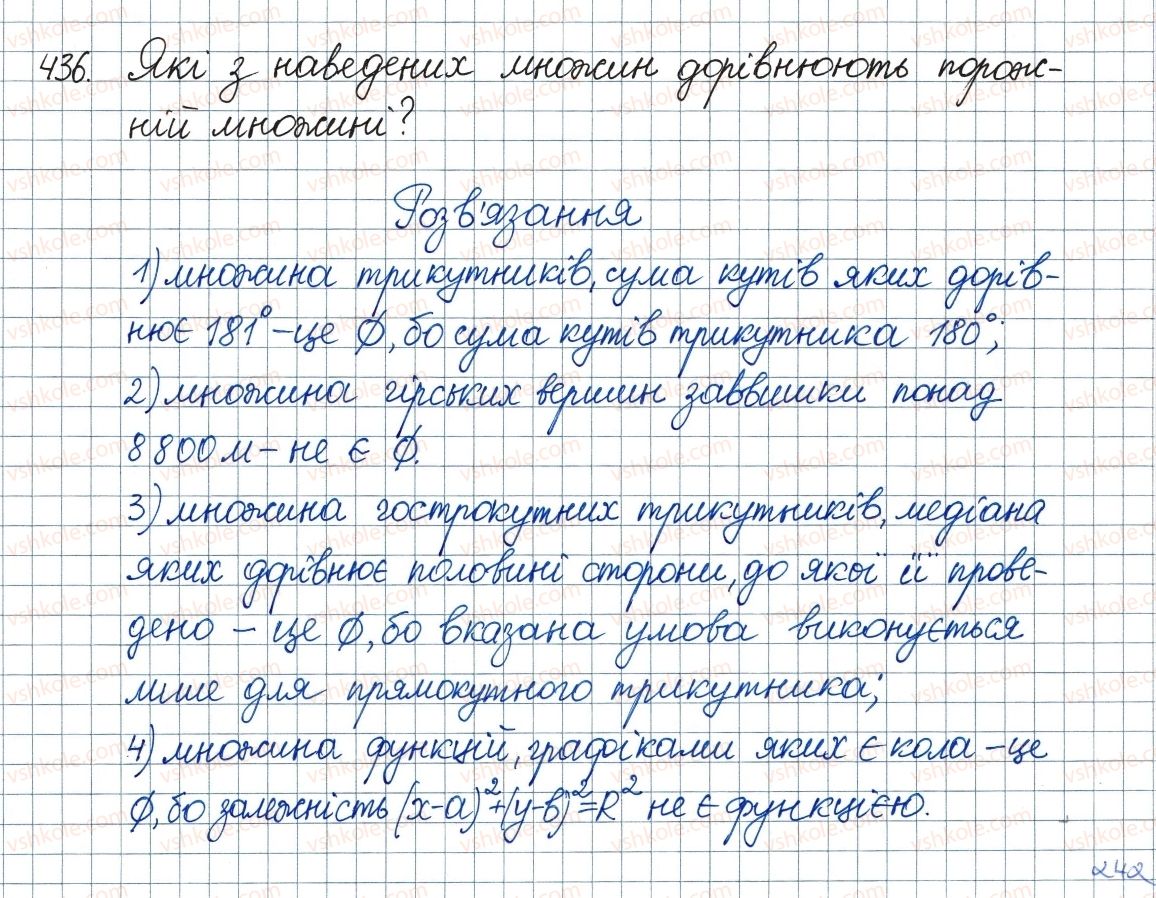 436. Які з наведених множин дорівнюють порож-
ній множині?
Розв'язання
1) множина трикутників, сума кутів яких дорів-
нює 181° – це ∅, бо сума кутів трикутника 180°;
2) множина гірських вершин заввишки понад
8800м – не є ∅.
3) множина гострокутних трикутників, медіана
яких дорівнює половині сторони, до якої її прове-
дено – це ∅, бо вказана умова виконується
лише для прямокутного трикутника;
4) множина функцій, графіками яких є кола – це
∅, бо залежність (x-a)²+(y-b)²=R² не є функцією.
242